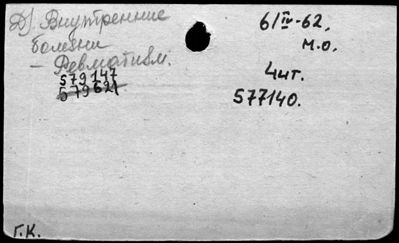 Д) Внутренние
болезни
– Ревматизм.
579147
579621
6/IV-62.
М.О.
4шт.
577140.
Г.К.